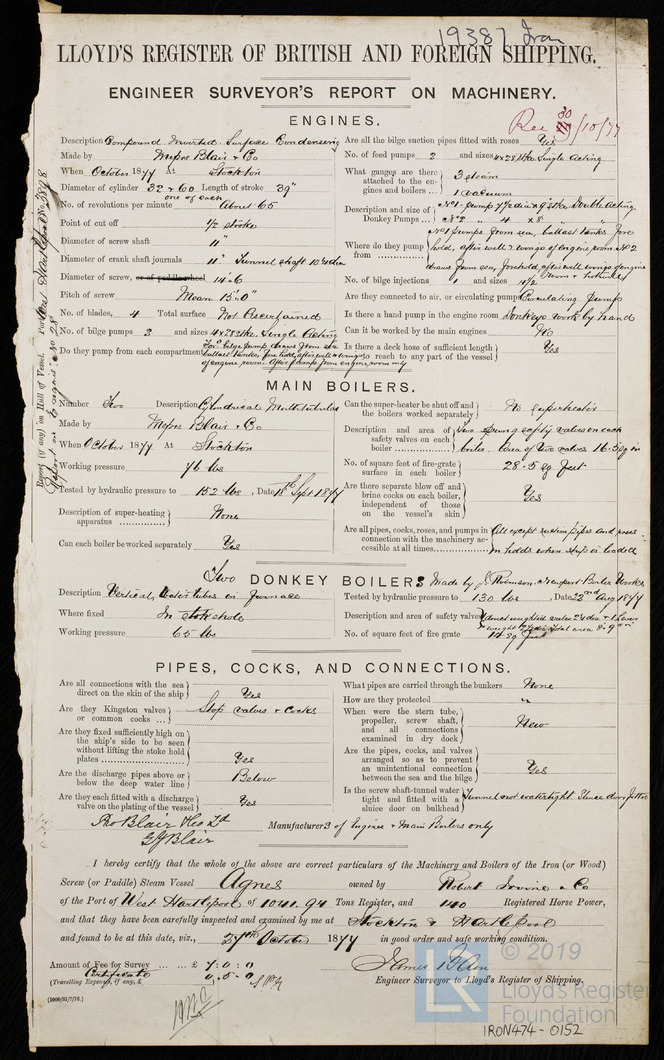 19387 Iron
LLOYD'S REGISTER OF BRITISH AND FOREIGN SHIPPING.
ENGINEER SURVEYOR'S REPORT ON MACHINERY.
Rec 30/10/77
ENGINES.
Description Compound Inverted Surface Condensing
Made by Messrs Blair & Co
When October 1877 At Stockton
Diameter of cylinder 32 & 60 Length of stroke 39"
one of each
No. of revolutions per minute About 65
Point of cut off 1/2 stroke
Diameter of screw shaft 11"
Diameter of crank shaft journals 11" Tunnel shaft 10 1/4 dia
Diameter of screw, or of paddle wheel 14-6
Pitch of screw Mean 15'-0"
No. of blades, 4 Total surface Not Ascertained
No. of bilge pumps 2 and sizes 4x28 stke Single Acting
Do they pump from each compartment
Are all the bilge suction pipes fitted with roses Yes
No. of feed pumps 2 and sizes 4x28 stke Single Acting
What gauges are there attached to the engines and boilers ... 3 steam
1 vacuum
Description and size of Donkey Pumps ... No 1 pump 7 1/2 dia x 9" stke Double Acting
No 2 " 4 x 8 "
Where do they pump from No 1 pumps from sea, ballast tanks, fore
hold, after well & wings of engine room No 2
draws from sea, forehold, after well wings of engine
room &
No. of bilge injections 1 and sizes 4 1/2
Are they connected to air, or circulating pump Circulating pump
Is there a hand pump in the engine room Donkeys work by hand
Can it be worked by the main engines No
Is there a deck hose of sufficient length to reach to any part of the vessel Yes
Report (if any) on Hull of Vessel.
MAIN BOILERS.
Number Two Description Cylindrical Multitubular
Made by Messrs Blair & Co
When October 1877 At Stockton
Working pressure 76 lbs
Tested by hydraulic pressure to 152 lbs, Date 18th Sept 1877
Description of super-heating apparatus None
Can each boiler be worked separately Yes
Can the super-heater be shut off and the boilers worked separately No superheater
Description and area of safety valves on each boiler Two spring safety valves on each
boiler. Area of two valves 16.5 sq in
No. of square feet of fire-grate surface in each boiler 28.5 sq feet
Are there separate blow off and brine cocks on each boiler, independent of those on the vessel's skin Yes
Are all pipes, cocks, roses, and pumps in connection with the machinery accessible at all times All except suction pipes and roses
in holds when ship is loaded
Two DONKEY BOILERS Made by J. Robinson, Newport Boiler Works
Description Vertical, Water tubes in furnace
Where fixed In stokehole
Working pressure 65 lbs
Tested by hydraulic pressure to 130 lbs, Date 22nd Aug 1877
Description and area of safety valve
No. of square feet of fire grate 14 sq feet
PIPES, COCKS, AND CONNECTIONS.
Are all connections with the sea direct on the skin of the ship Yes
Are they Kingston valves or common cocks ... Stop valves & Cocks
Are they fixed sufficiently high on the ship's side to be seen without lifting the stoke hold plates Yes
Are the discharge pipes above or below the deep water line Below
Are they each fitted with a discharge valve on the plating of the vessel Yes
What pipes are carried through the bunkers None
How are they protected "
When were the stern tube, propeller, screw shaft, and all connections examined in dry dock New
Are the pipes, cocks, and valves arranged so as to prevent an unintentional connection between the sea and the bilge Yes
Is the screw shaft-tunnel water tight and fitted with a sluice door on bulkhead Tunnel and watertight Sluice door fitted
Pro Blair & Co Ld
G Y Blair
Manufacturers of Engines & Main Boilers only
I hereby certify that the whole of the above are correct particulars of the Machinery and Boilers of the Iron (or Wood)
Screw (or Paddle) Steam Vessel Agnes owned by Robert Irvine & Co
of the Port of West Hartlepool of 1041.94 Tons Register, and 140 Registered Horse Power,
and that they have been carefully inspected and examined by me at Stockton & Hartlepool
and found to be at this date, viz., 27th October 1877 in good order and safe working condition.
Amount of Fee for Survey ... £ 7:0:0
Certificate 0.5.0
(Travelling Expenses, if any, £
Engineer Surveyor to Lloyd's Register of Shipping.
© 2019
Lloyd's Register
Foundation
IRON474-0152